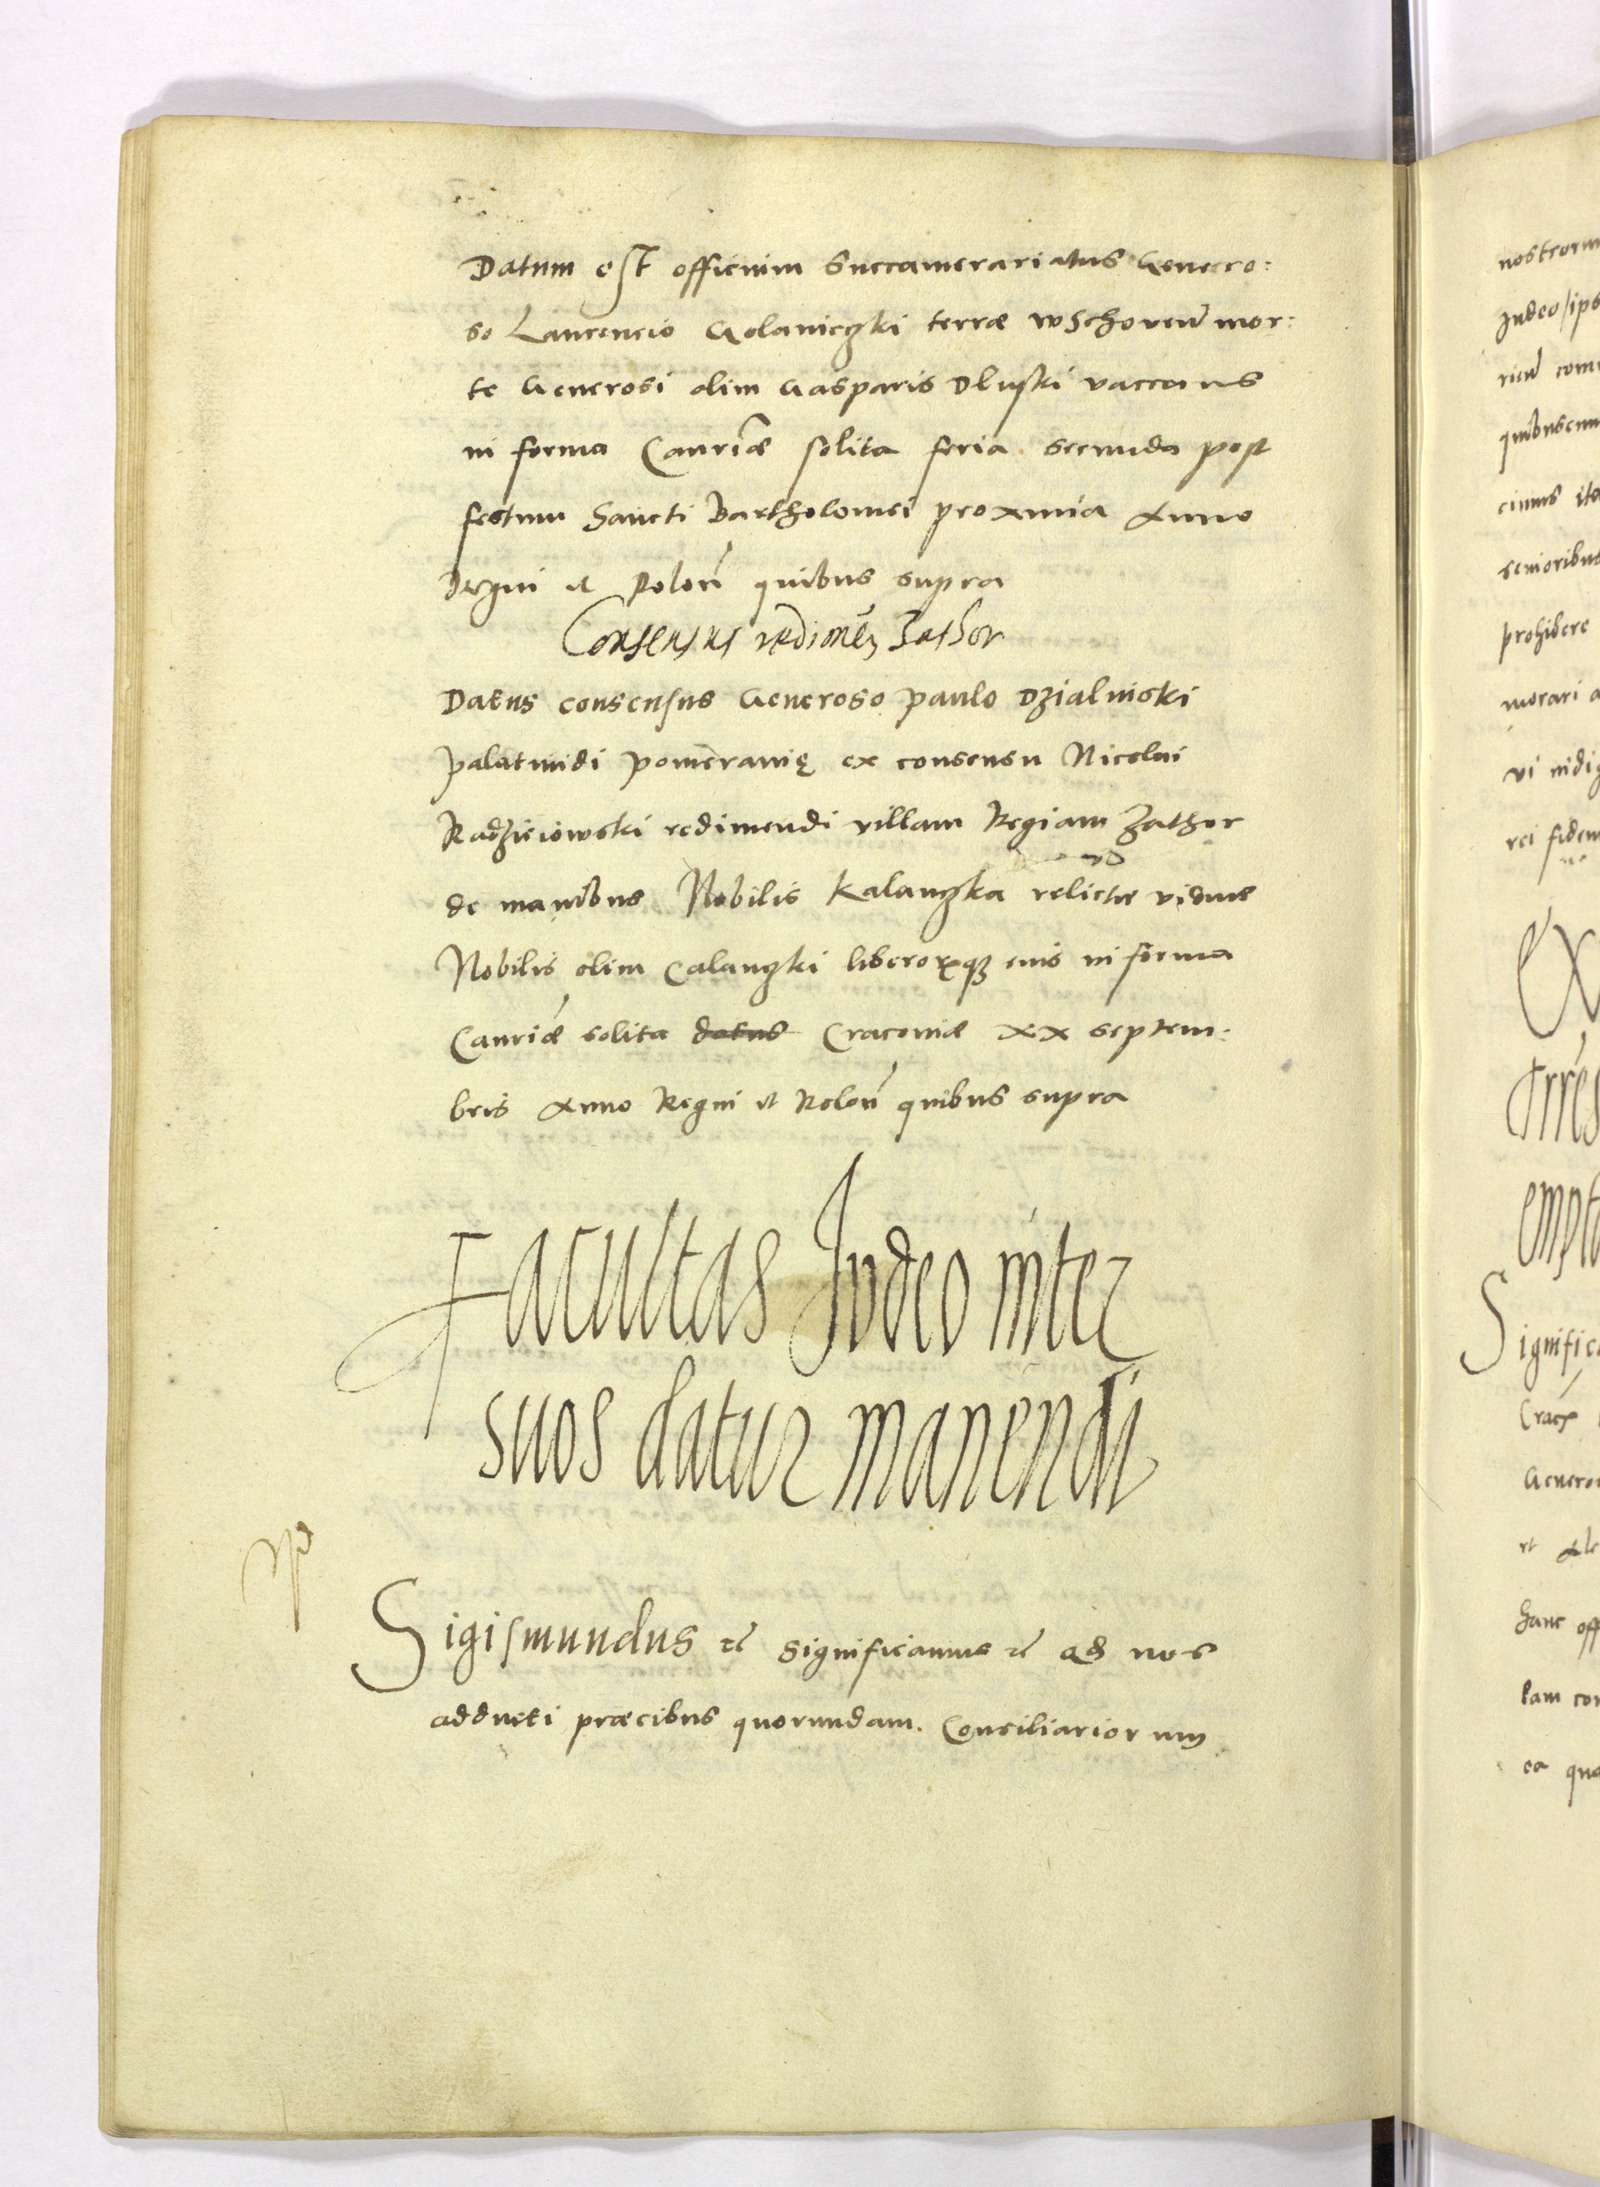 Datum est officium Succamerariatus Genero:
so Laurencio Golaniczki terræ wSchoven̄ mor:
te Generosi olim Gasparis Dluski vaccans
in forma Canrīæ solita feria secunda post
festum Sancti Bartholomei proxima Anno
Regni et Polon̄ quibus supra
Consensus redimen Zathor
Datus consensus Generoso Paulo Dzialinski
Palatinidi Pomeranię ex consensu Nicolai
Radzieiowski redimendi villam Regiam Zathor
de manibus Nobilis Kalanzka relictæ viduæ
Nobilis olim Calanzki liberorqз eius in forma
Canrīæ solita datus Cracoviæ xx Septem:
bris Anno Regni et Polon̄ quibus supra
Facultas Iudeo inter
suos datur manendi
Sigismundus etc̄ Significamus etc̄ Q̄ nos
adducti præcibus quorundam Consiliariorum
nostrorum
Iudeo
prohibere
morari
Ex
Signific